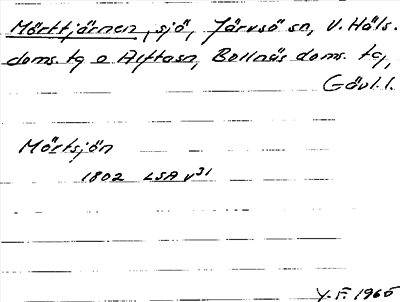 Mörttjärnen, sjö, Järvsö sn, V. Häls.
doms. tg o Alftasn, Bollnäs doms. tg,
Gävl. l.
Mörtsjön
1802 LSA v31
Y. F. 1965